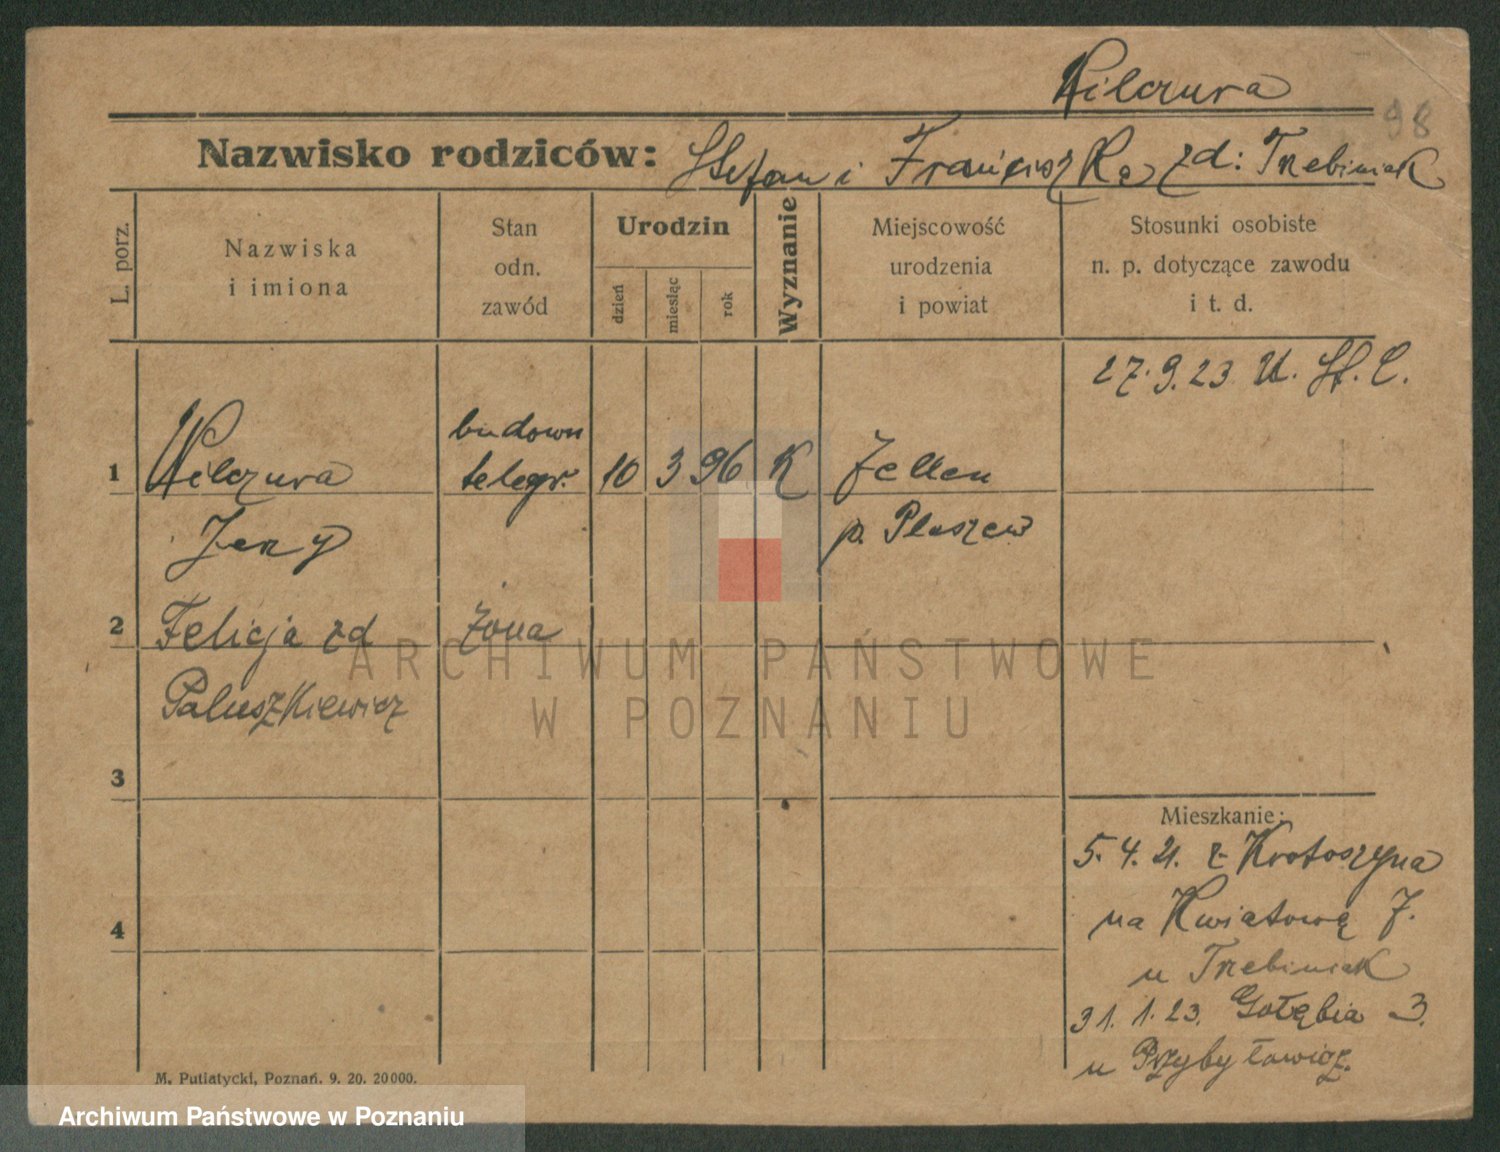 Wilczura
98
Nazwisko rodziców: Stefan i Franciszka zd: Trzebiniak
L. porz.
Nazwiska
i imiona
Stan
odn.
zawód
Urodzin
dzień
miesiąc
rok
Wyznanie
Miejscowość
urodzenia
i powiat
Stosunki osobiste
n. p. dotyczące zawodu
i t. d.
27.9.23 U. St. C.
1
Wilczura
Jerzy
budown
telegr.
10 3 96 K
Zellen
p. Pleszew
2
Felicja zd
Paluszkiewicz
żona
3
4
Mieszkanie:
5.4.21. z Krotoszyna
na Kwiatową 7.
u Trzebiniak
31.1.23. Gołębia 3.
u Przybyłowicz.
M. Putiatycki, Poznań. 9. 20. 20000.
ARCHIWUM PAŃSTWOWE
W POZNANIU
Archiwum Państwowe w Poznaniu